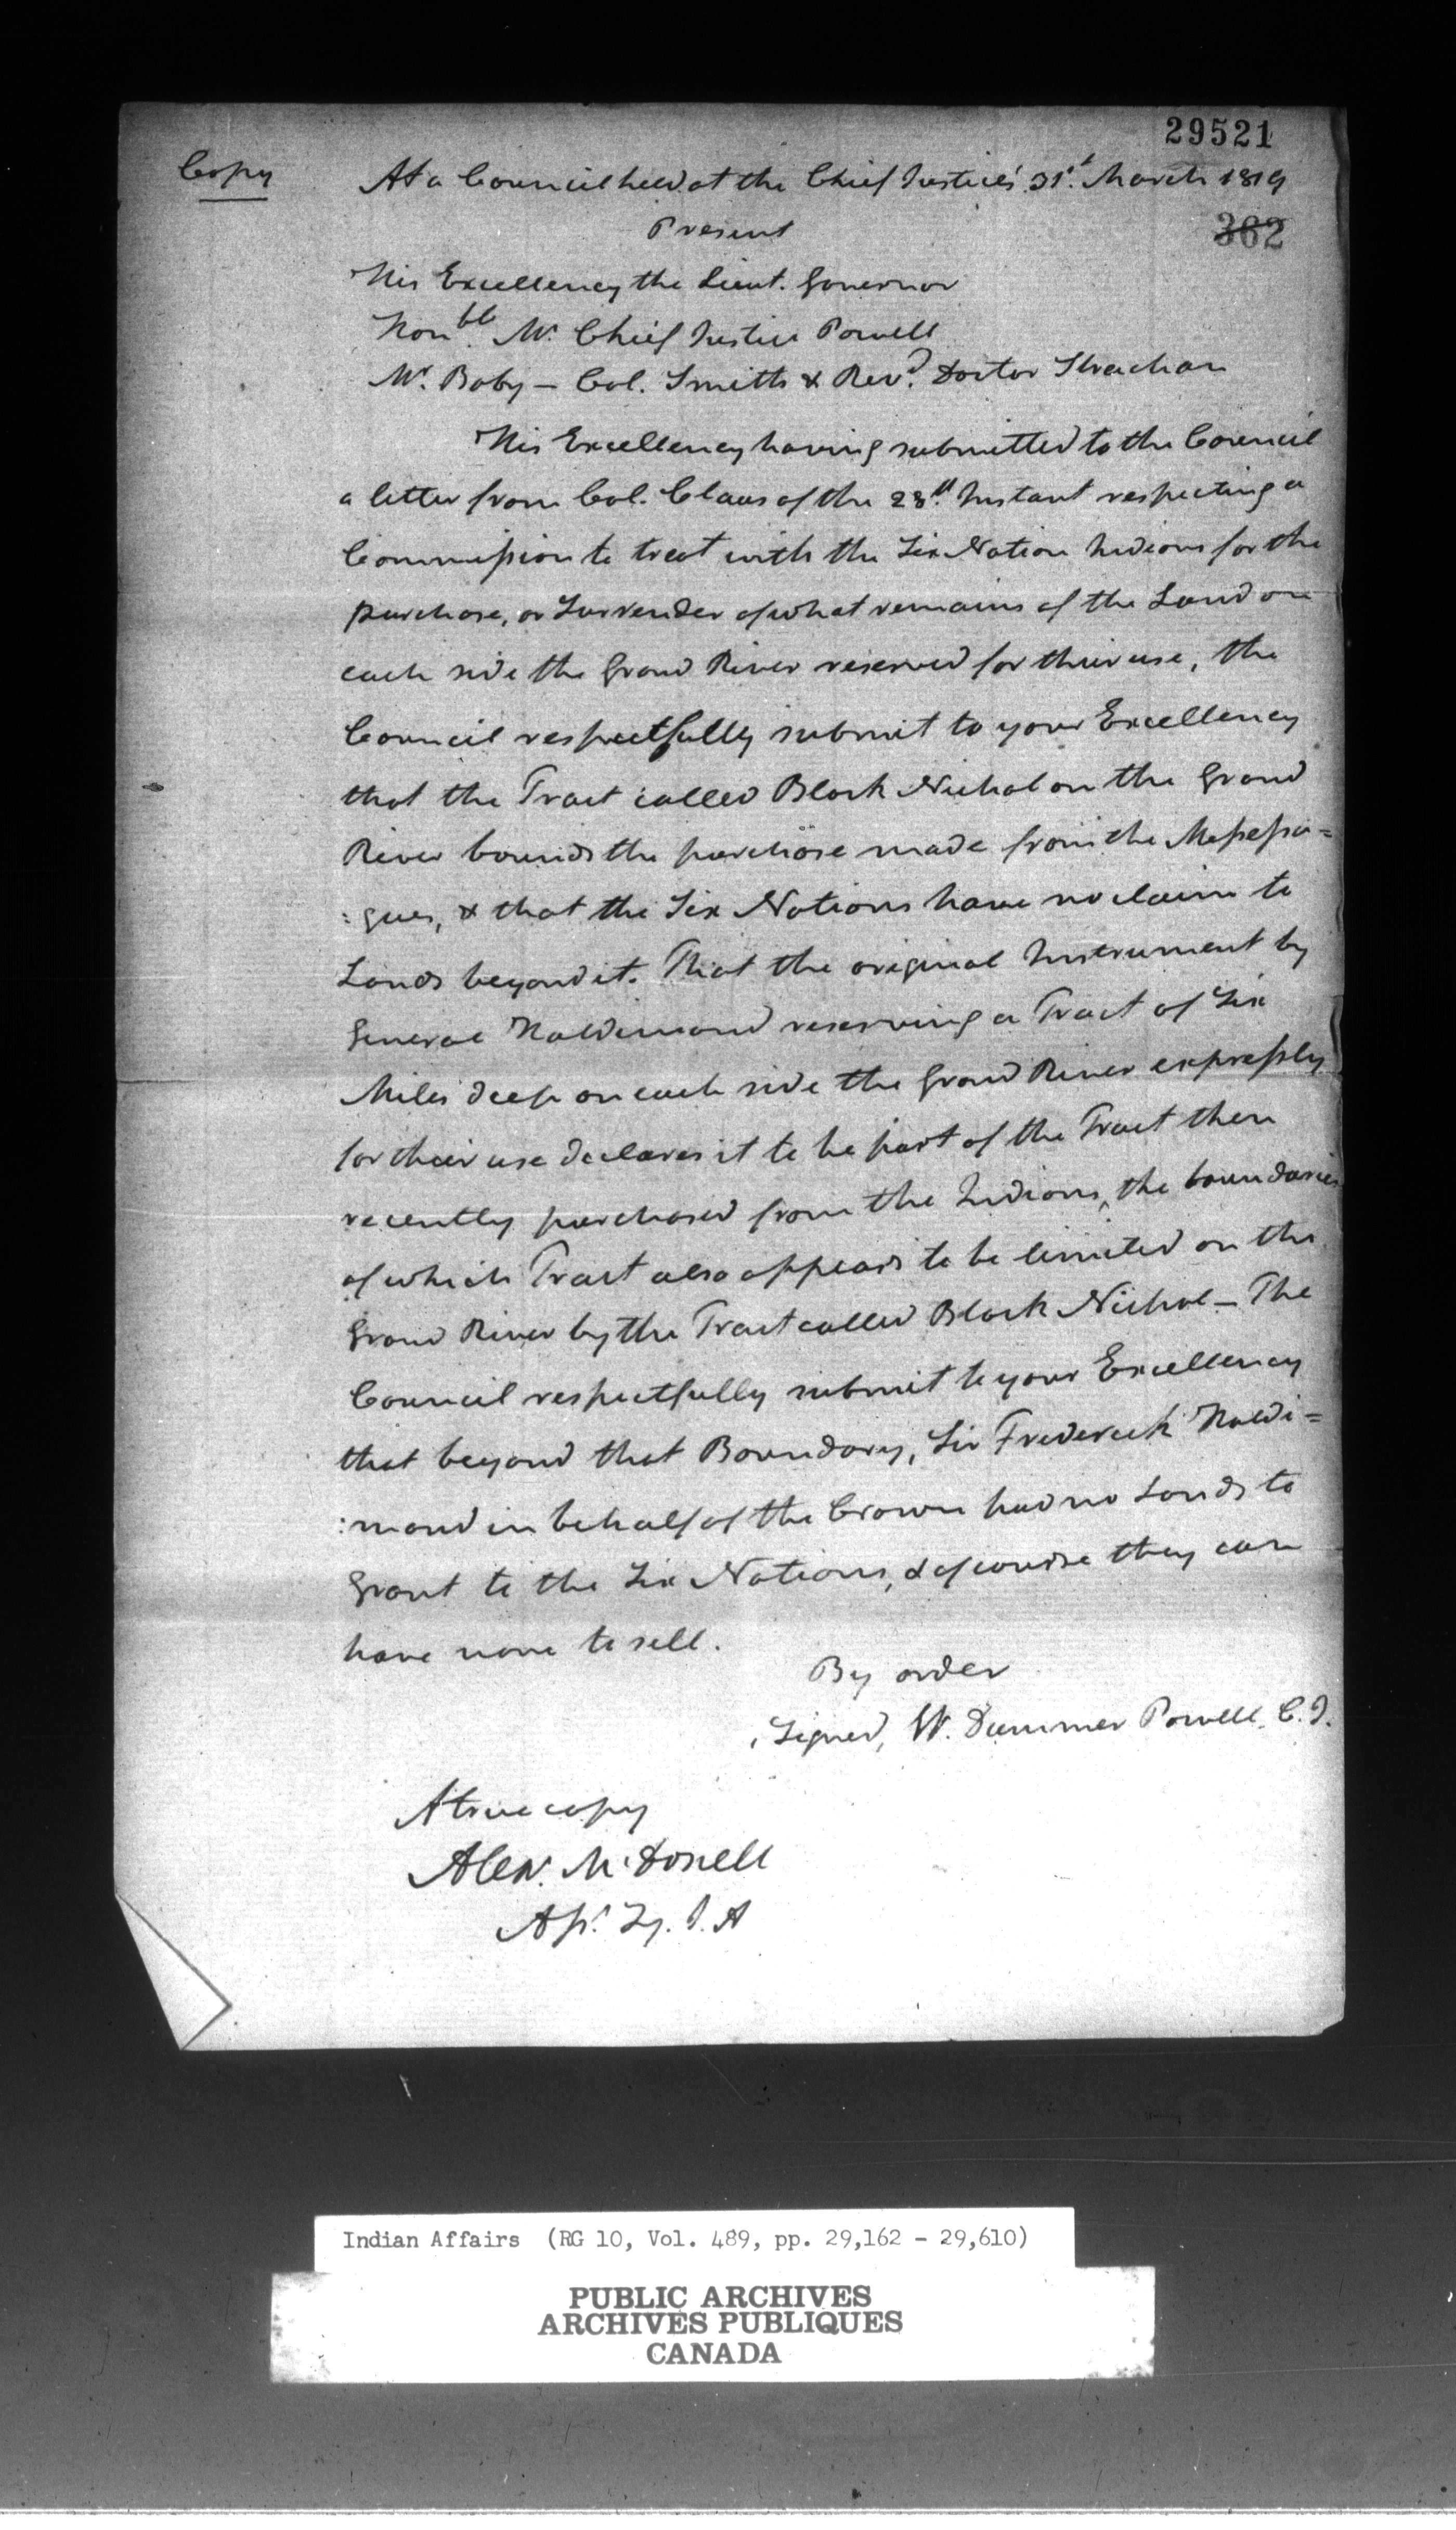 29521
Copy
At a Council held at the Chief Justice's 31st. March 1819
362
Present
His Excellency the Lieut. Governor
Honble. Mr. Chief Justice Powell
Mr. Baby – Col. Smith & Revd. Doctor Strachan
His Excellency having submitted to the Council
a letter from Col. Claus of the 28th. Instant respecting a
Commission to treat with the Six Nation Indians for the
purchase, or Surrender of what remains of the Land on
each side the Grand River reserved for their use, the
Council respectfully submit to your Excellency
that the Tract called Block Nichol on the Grand
River bounds the purchase made from the Messessa=
:gues, & that the Six Nations have no claim to
Lands beyond it. That the original Instrument by
General Haldimand reserving a Tract of Six
Miles deep on each side the Grand River expressly
for their use declares it to be part of the Tract then
recently purchased from the Indians, the boundaries
of which Tract also appears to be limited on the
Grand River by the Tract called Block Nichol – The
Council respectfully submit to your Excellency
that beyond that Boundary, Sir Frederick Haldi=
:mand in behalf of the Crown had no Lands to
Grant to the Six Nations, & of course they can
have none to sell.
By order
Signed, W. Dummer Powell. C.J.
A true copy
Alexr. McDonell
Asst. Sy. I. A
Indian Affairs (RG 10, Vol. 489, pp. 29,162 - 29,610)
PUBLIC ARCHIVES
ARCHIVES PUBLIQUES
CANADA